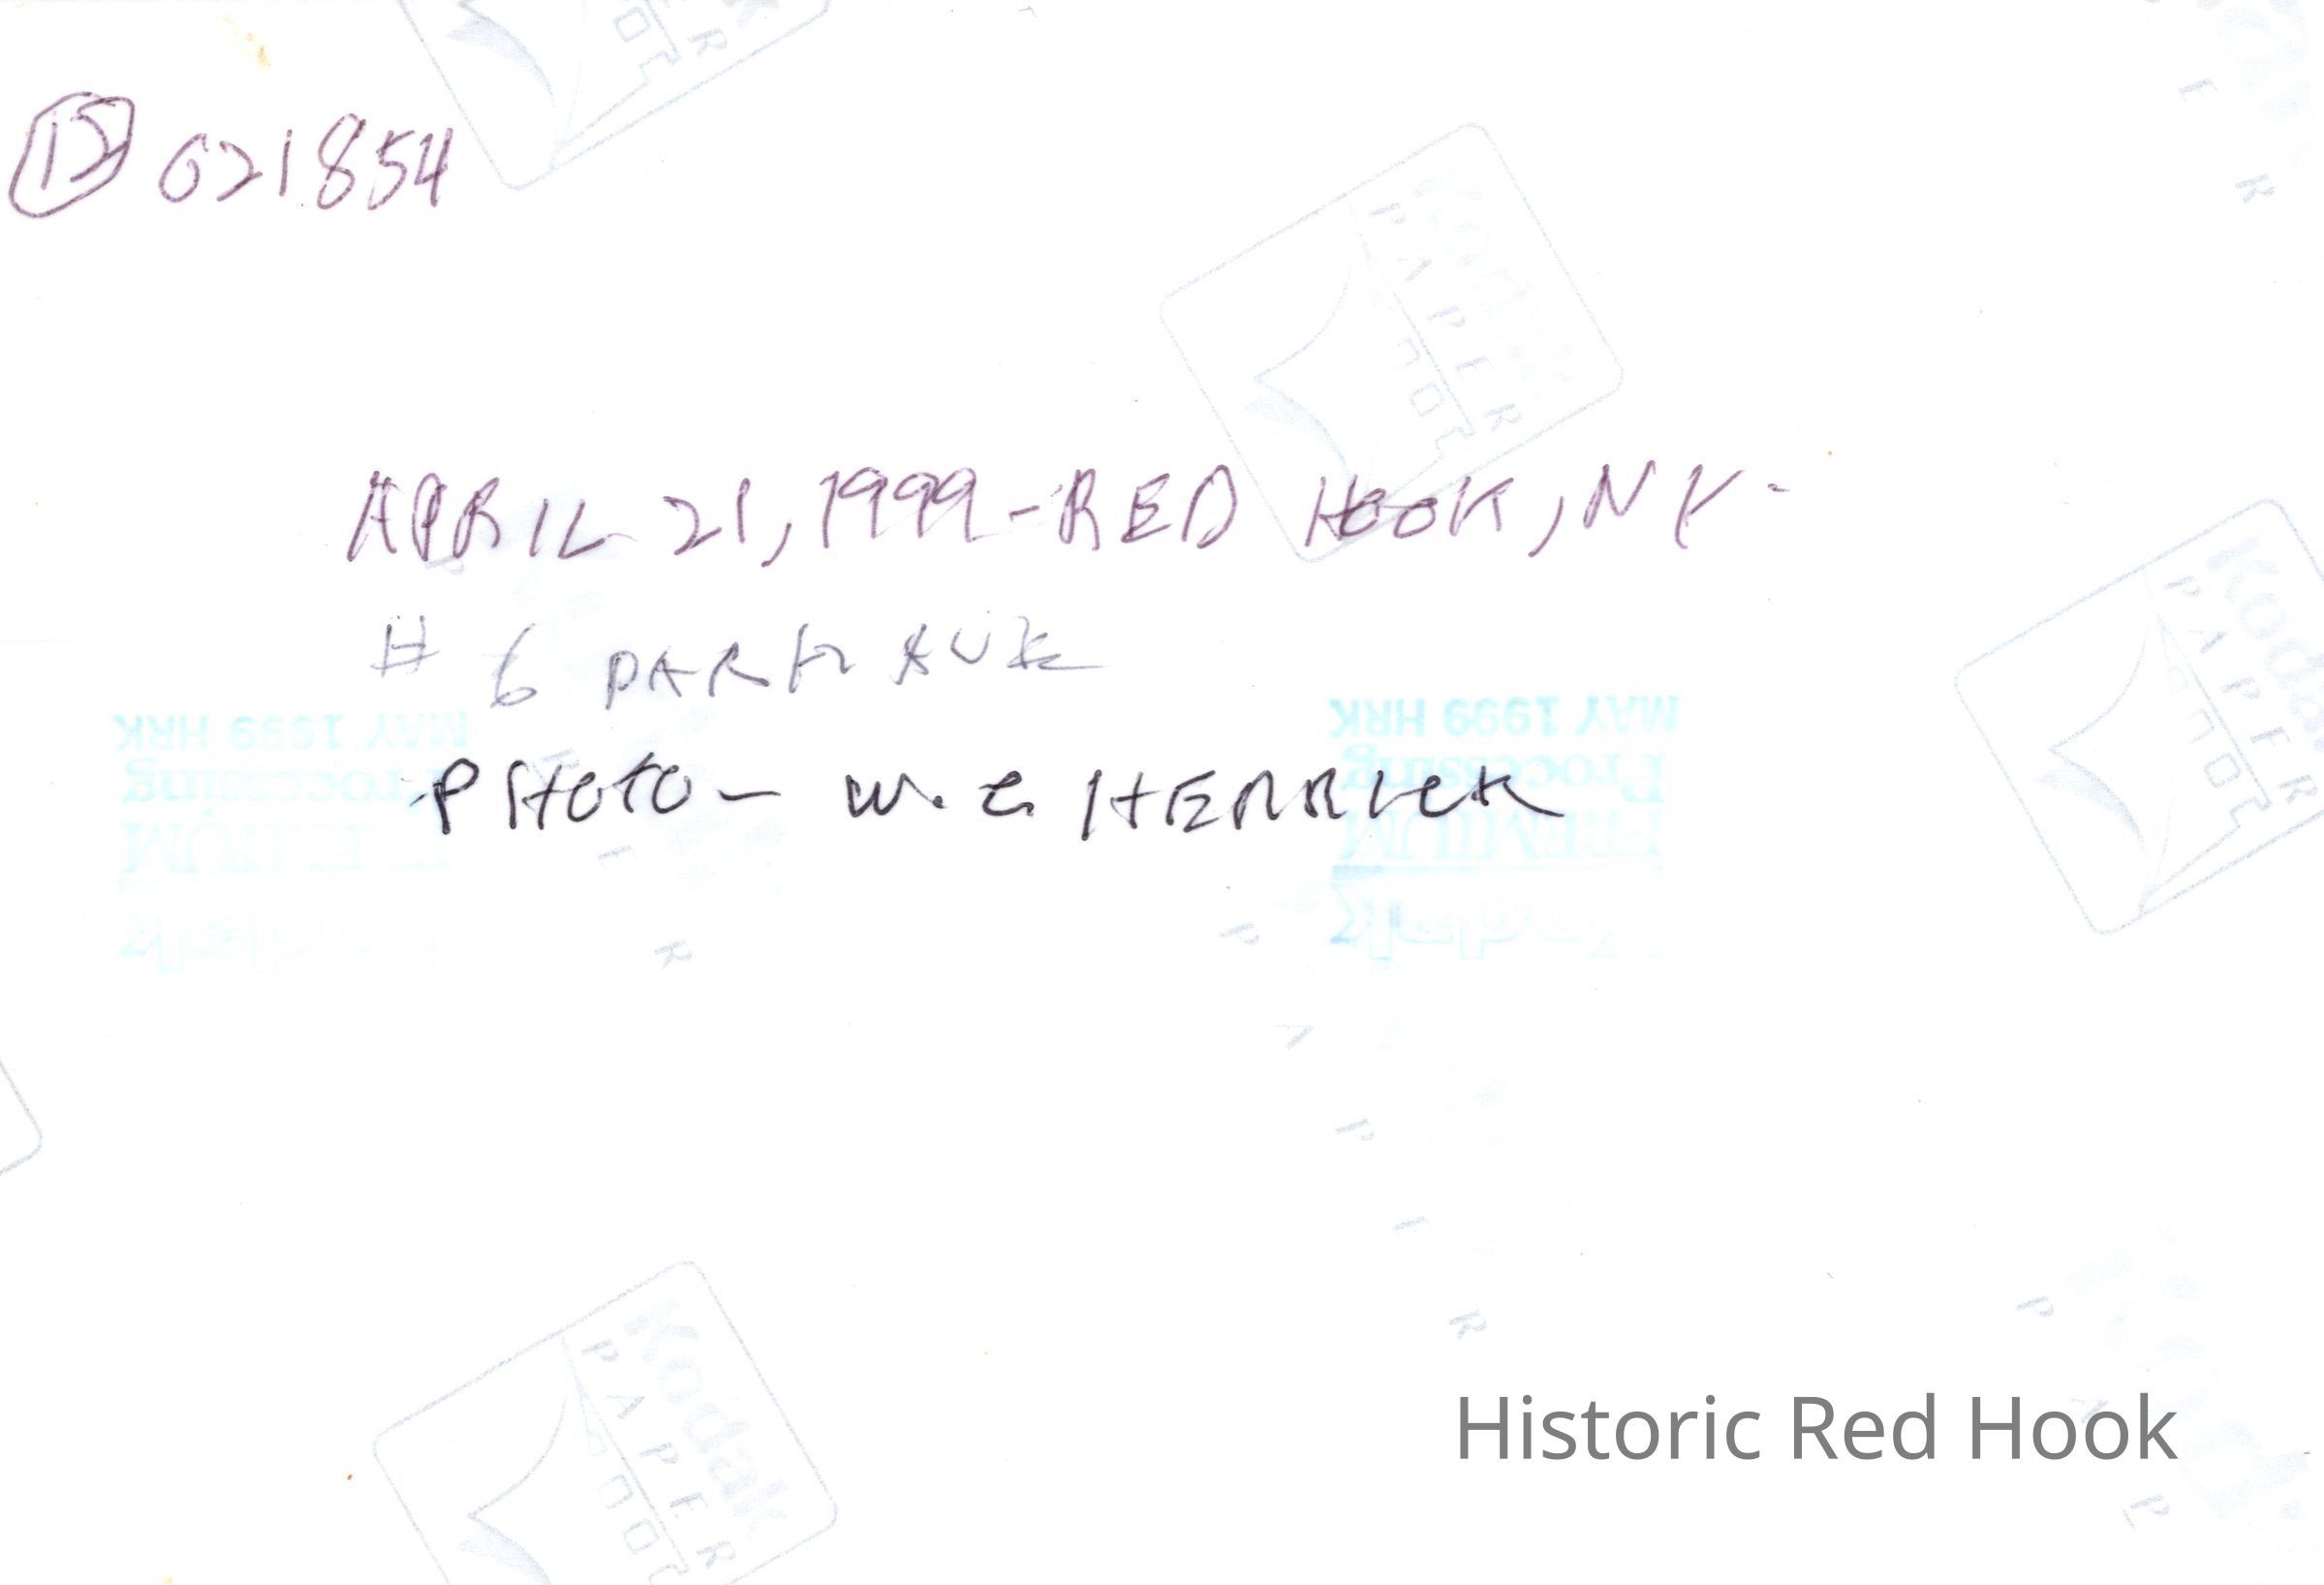 15 621854
APRIL 21, 1999 - RED HOOK, NY.
# 6 PARK AVE
PHOTO - W. E. HERRICK
MAY 1999 HRK
Processing
PREMIUM
Kodak
MAY 1999 HRK
Processing
PREMIUM
Kodak
Kodak
PAPER
Kodak
PAPER
Kodak
PAPER
Historic Red Hook